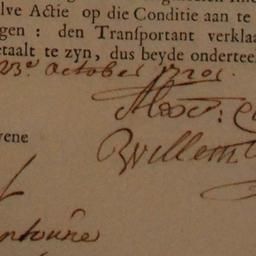 lve Actie op die Conditie aan te
gen : den Transportant verklaa
etaalt te zyn, dus beyde onderteek
23e October 1720.
Alex:
vene
Willem
ntoine